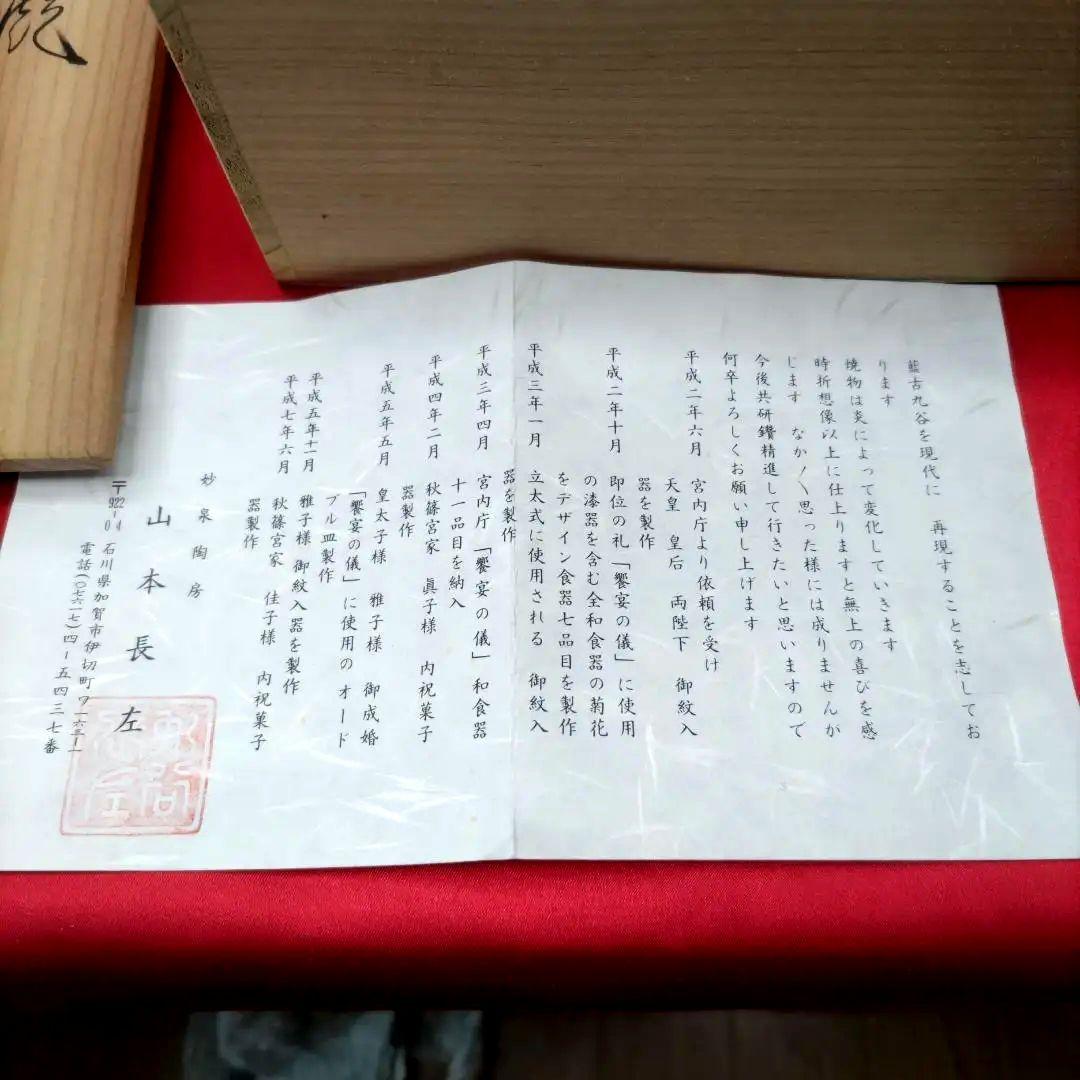 藍古九谷を現代に　再現することを志してお
ります
焼物は炎によって変化していきます
時折想像以上に仕上りますと無上の喜びを感
じます　なか〳〵思った様には成りませんが
今後共研鑽精進して行きたいと思いますので
何卒よろしくお願い申し上げます
平成二年六月　宮内庁より依頼を受け
天皇　皇后　両陛下　御紋入
器を製作
平成二年十月　即位の礼「饗宴の儀」に使用
の漆器を含む全和食器の菊花
をデザイン食器七品目を製作
平成三年一月　立太式に使用される　御紋入
器を製作
平成三年四月　宮内庁「饗宴の儀」和食器
十一品目を納入
平成四年二月　秋篠宮家　眞子様　内祝菓子
器製作
平成五年五月　皇太子様　雅子様　御成婚
「饗宴の儀」に使用のオード
ブル皿製作
平成五年十一月　雅子様　御紋入器を製作
平成七年六月　秋篠宮家　佳子様　内祝菓子
器製作
妙泉陶房
山本長左
〒922-04　石川県加賀市伊切町ヲ一六三-一
電話(〇七六一七)四-五四三七番